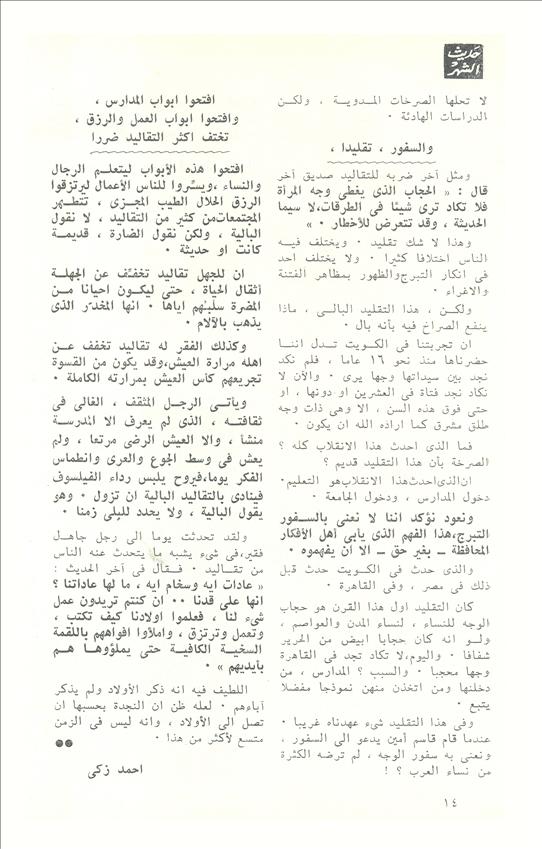 حديث
الشهر
لا تحلها الصرخات المدوية ، ولكن
الدراسات الهادئة .
والسفور ، تقليدا ،
ومثل آخر ضربه للتقاليد صديق آخر
قال : « الحجاب الذى يغطى وجه المرأة
فلا تكاد ترى شيئا فى الطرقات،لا سيما
الحديثة ، وقد تتعرض للأخطار . »
وهذا لا شك تقليد . ويختلف فيه
الناس اختلافا كثيرا . ولا يختلف احد
فى انكار التبرج والظهور بمظاهر الفتنة
والاغراء .
ولكن ، هذا التقليد البالى ، ماذا
ينفع الصراخ فيه بأنه بال .
ان تجربتنا فى الكويت تدل اننا
حضرناها منذ نحو ١٦ عاما ، فلم نكد
نجد بين سيداتها وجها يرى . والآن لا
نكاد نجد فتاة فى العشرين او دونها ، او
حتى فوق هذه السن ، الا وهى ذات وجه
طلق مشرق كما اراده الله ان يكون .
فما الذى احدث هذا الانقلاب كله ؟
الصرخة بأن هذا التقليد قديم ؟
ان الذى احدث هذا الانقلاب هو التعليم.
دخول المدارس ، ودخول الجامعة .
ونعود نؤكد اننا لا نعنى بالسفور
التبرج،هذا الفهم الذى يأبى أهل الأفكار
المحافظة ــ بغير حق ــ الا ان يفهموه .
والذى حدث فى الكويت حدث قبل
ذلك فى مصر ، وفى القاهرة .
كان التقليد اول هذا القرن هو حجاب
الوجه للنساء ، لنساء المدن والعواصم ،
ولو انه كان حجابا ابيض من الحرير
شفافا . واليوم،لا تكاد تجد فى القاهرة
وجها محجبا . والسبب ؟ المدارس ، من
دخلنها ومن اتخذن منهن نموذجا مفضلا
يتبع .
وفى هذا التقليد شىء عهدناه غريبا .
عندما قام قاسم أمين يدعو الى السفور ،
ونعنى به سفور الوجه ، لم ترضه الكثرة
من نساء العرب ؟ !
افتحوا ابواب المدارس ،
وافتحوا ابواب العمل والرزق ،
تختف اكثر التقاليد ضررا
افتحوا هذه الأبواب ليتعلم الرجال
والنساء ،ويسّروا للناس الأعمال ليرتزقوا
الرزق الحلال الطيب المجزى ، تتطهر
المجتمعات من كثير من التقاليد ، لا نقول
البالية ، ولكن نقول الضارة ، قديمة
كانت او حديثة .
ان للجهل تقاليد تخفّف عن الجهلة
أثقال الحياة ، حتى ليكون احيانا من
المضرة سلبُهم اياها . انها المخدّر الذى
يذهب بالآلام .
وكذلك الفقر له تقاليد تخفف عن
اهله مرارة العيش،وقد يكون من القسوة
تجريعهم كأس العيش بمرارته الكاملة .
ويأتى الرجل المثقف ، الغالى فى
ثقافته ، الذى لم يعرف الا المدرسة
منشأ ، والا العيش الرضى مرتعا ، ولم
يعش فى وسط الجوع والعرى وانطماس
الفكر يوما،فيروح يلبس رداء الفيلسوف
فينادى بالتقاليد البالية ان تزول . وهو
يقول البالية ، ولا يحدد للبِلى زمنا .
ولقد تحدثت يوما الى رجل جاهل
فقير،فى شىء يشبه ما يتحدث عنه الناس
من تقاليد . فقال فى آخر الحديث :
« عادات ايه وسخام ايه ، ما لها عاداتنا ؟
انها على قدنا .. ان كنتم تريدون عمل
شىء لنا ، فعلموا اولادنا كيف تكتب ،
وتعمل وترتزق ، واملأوا افواههم باللقمة
السخية الكافية حتى يملؤوها هم
بأيديهم » .
اللطيف فيه انه ذكر الأولاد ولم يذكر
آباءهم . لعله ظن ان النجدة بحسبها ان
تصل الى الأولاد ، وانه ليس فى الزمن
متسع لأكثر من هذا .
احمد زكى
١٤